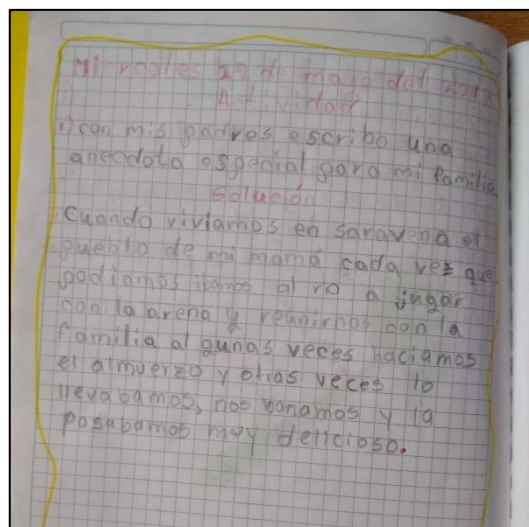 Miercoles 29 de mayo del 201
1)
Actividad
1) con mis padres escribo una
anecdota especial para mi familia
Solución
Cuando viviamos en saravena el
pueblo de mi mamá cada vez que
podiamos ibamos al rio a jugar
con la arena y reunirnos con la
familia algunas veces haciamos
el almuerzo y otras veces lo
llevabamos, nos banamos y la
pasabamos muy delicioso.